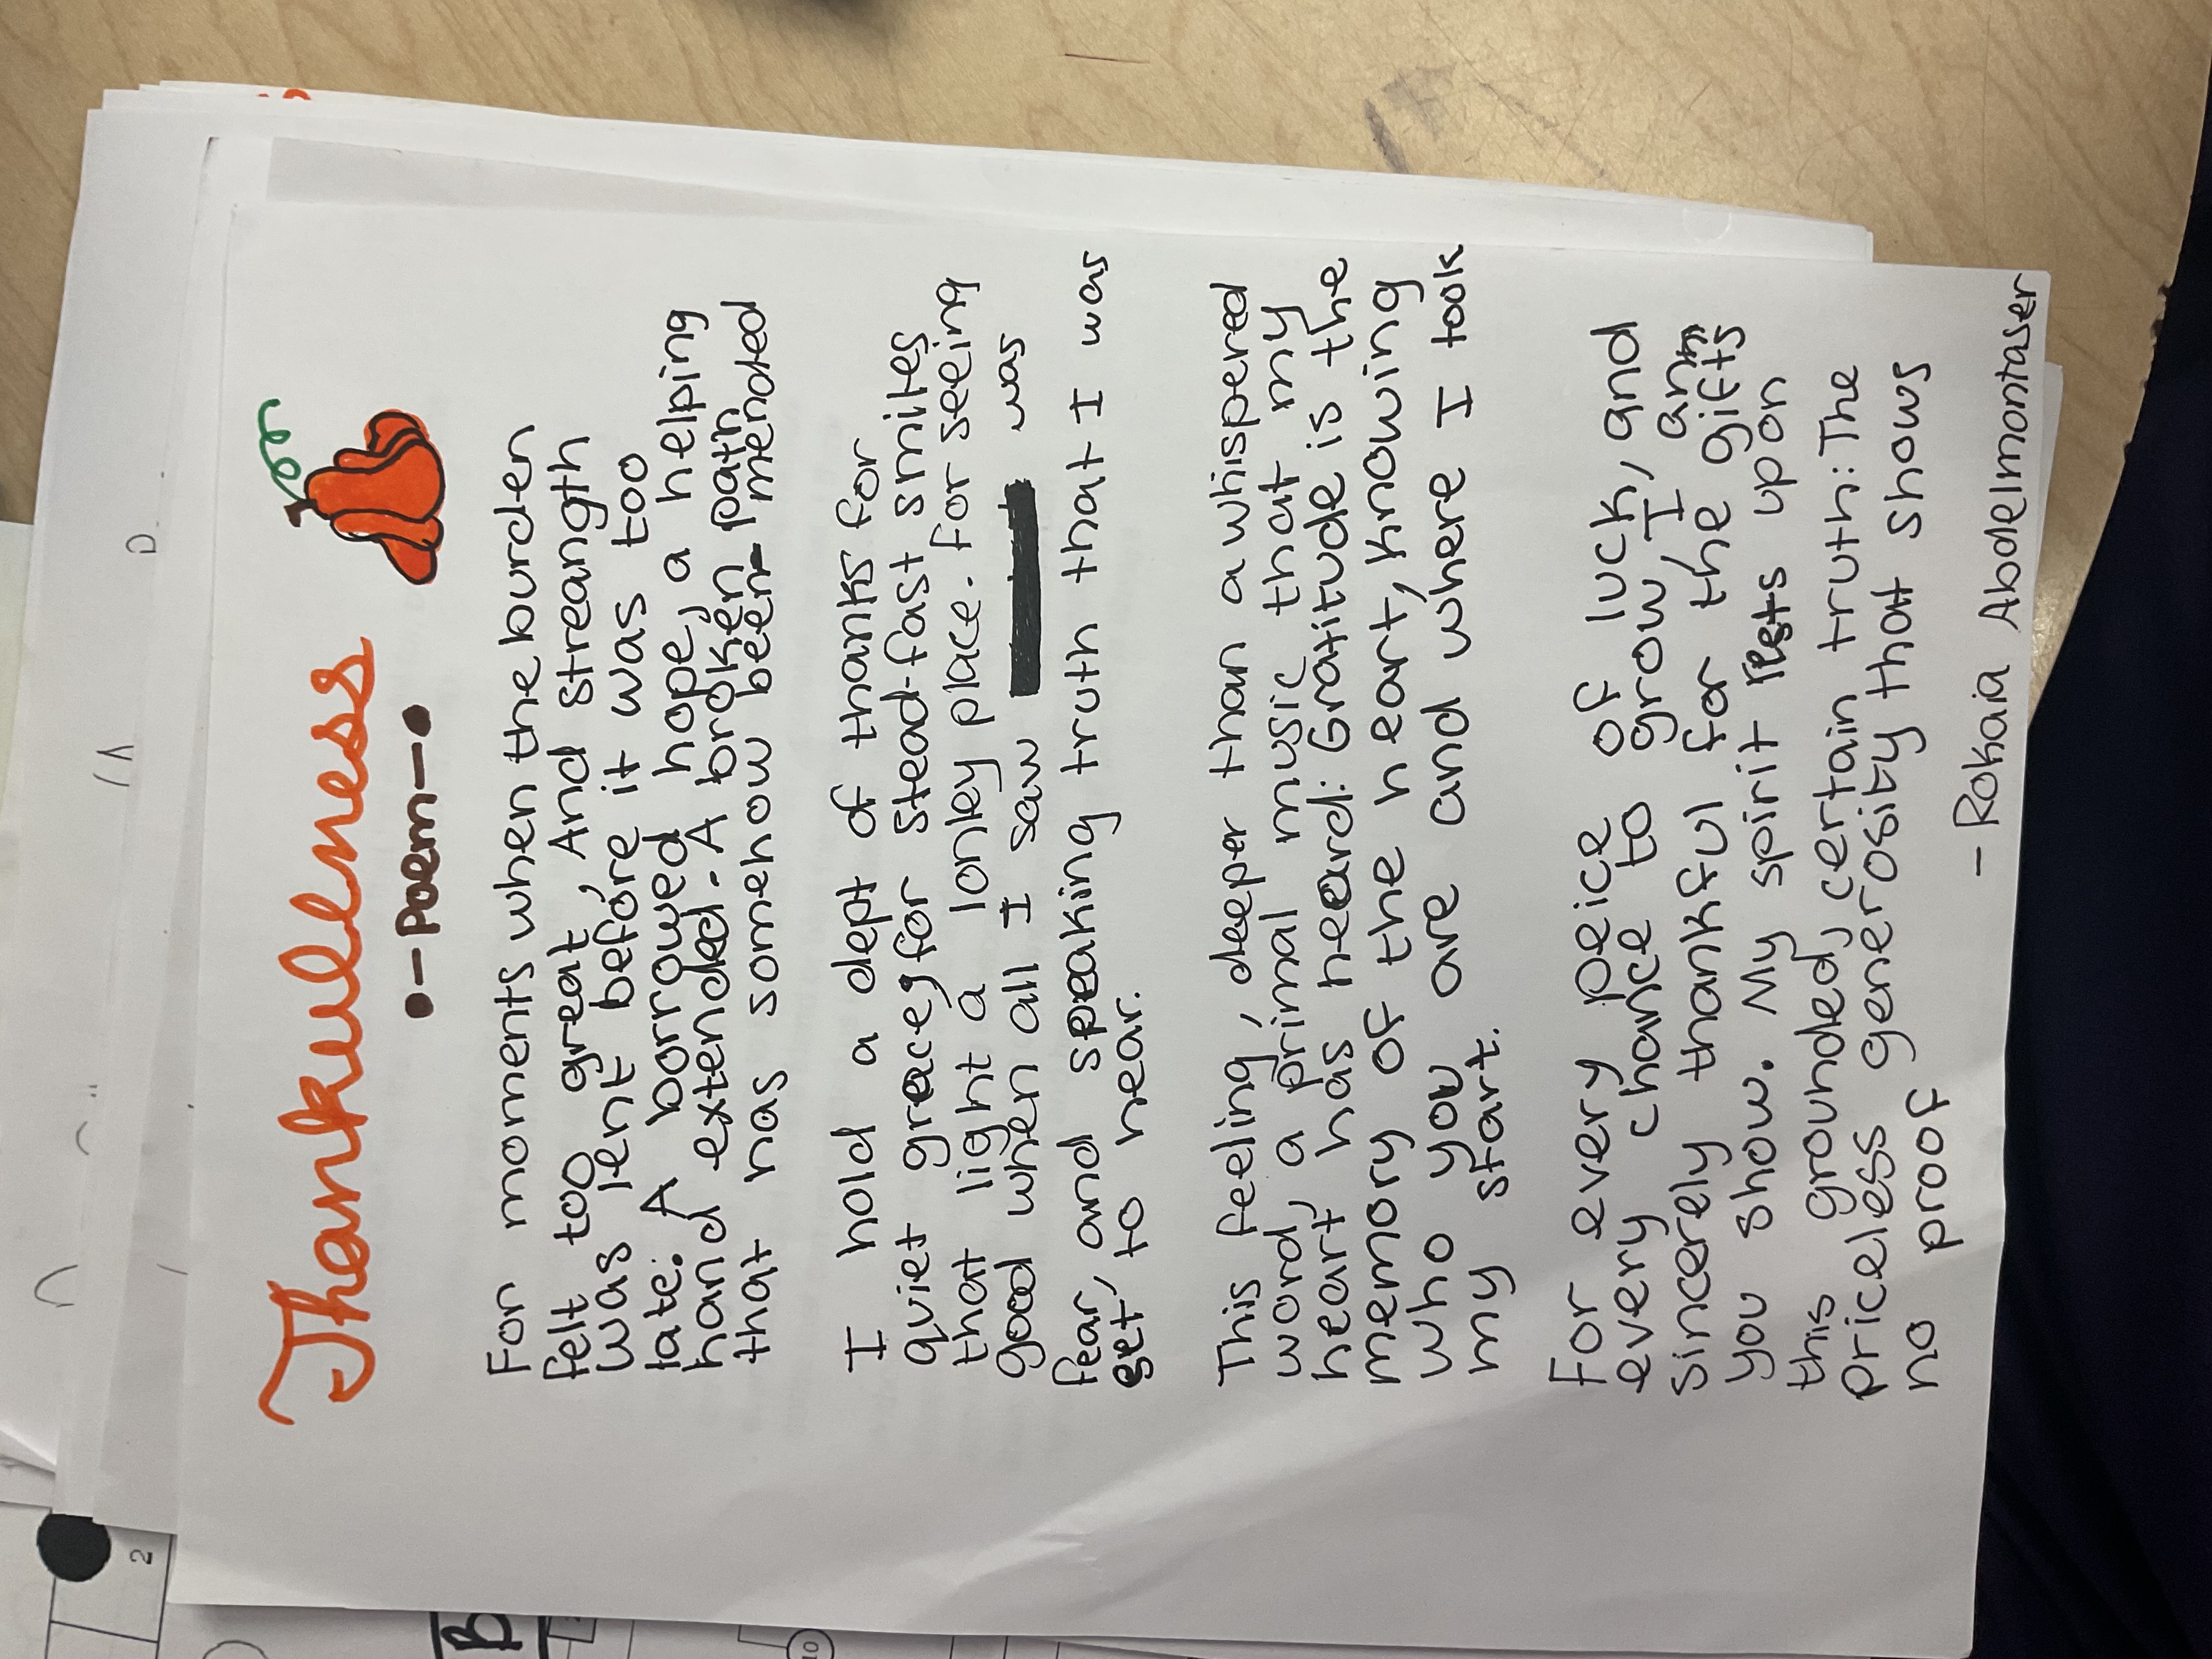 Thankullness
•—Poem—•
For moments when the burden
felt too great, And streangth
was lent before it was too
late. A borrowed hope, a helping
hand extended. A broken path
that has somehow been mended
I hold a dept of thanks for
quiet grace, for stead-fast smiles
that light a lonley place. For seeing
good when all I saw was
fear, and speaking truth that I was
set, to hear.
This feeling, deeper than a whispered
word, a primal music that my
heart has heard: Gratitude is the
memory of the heart, knowing
who you are and where I took
my start.
For every peice of luck, and
every chance to grow, I am
sincerely thankful for the gifts
you show. My spirit rests upon
this grounded, certain truth: The
priceless generosity that shows
no proof
- Rokaia Abdelmontaser
D
2
B
10